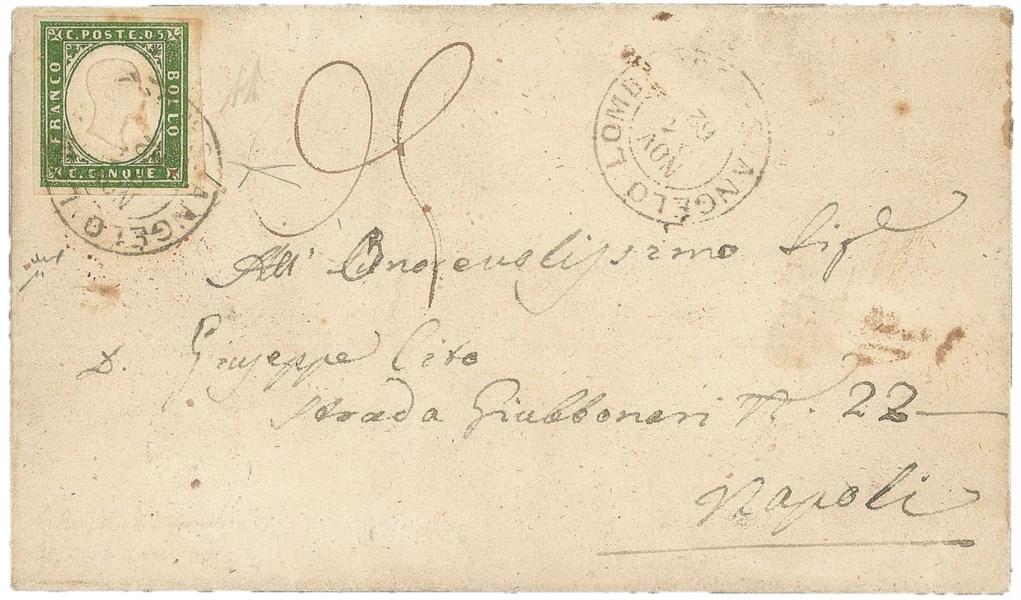 C. POSTE. 05
FRANCO
BOLLO
C. CINQUE
S. ANGELO LOMB
NOV
62
All' Onorevolissimo Sigr
D. Giuseppe Cito
Strada Giubbonari N. 22
Napoli